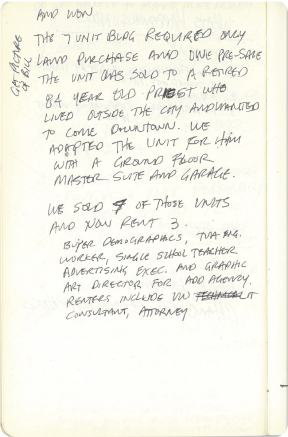 AND WON
THE 7 UNIT BLDG REQUIRED ONLY
LAND PURCHASE AND ONE PRE-SALE
THE UNIT WAS SOLD TO A RETIRED
84 YEAR OLD PRIEST WHO
LIVED OUTSIDE THE CITY AND WANTED
TO COME DOWNTOWN. WE
ADAPTED THE UNIT FOR HIM
WITH A GROUND FLOOR
MASTER SUITE AND GARAGE.
WE SOLD 4 OF THOSE UNITS
AND NOW RENT 3.
BUYER DEMOGRAPHICS, TVA ENG.
WORKER, SINGLE SCHOOL TEACHER
ADVERTISING EXEC. AND GRAPHIC
ART DIRECTOR FOR ADD AGENCY.
RENTERS INCLUDE VW TECHNICAL IT
CONSULTANT, ATTORNEY
GET PICTURE
OF BLDG